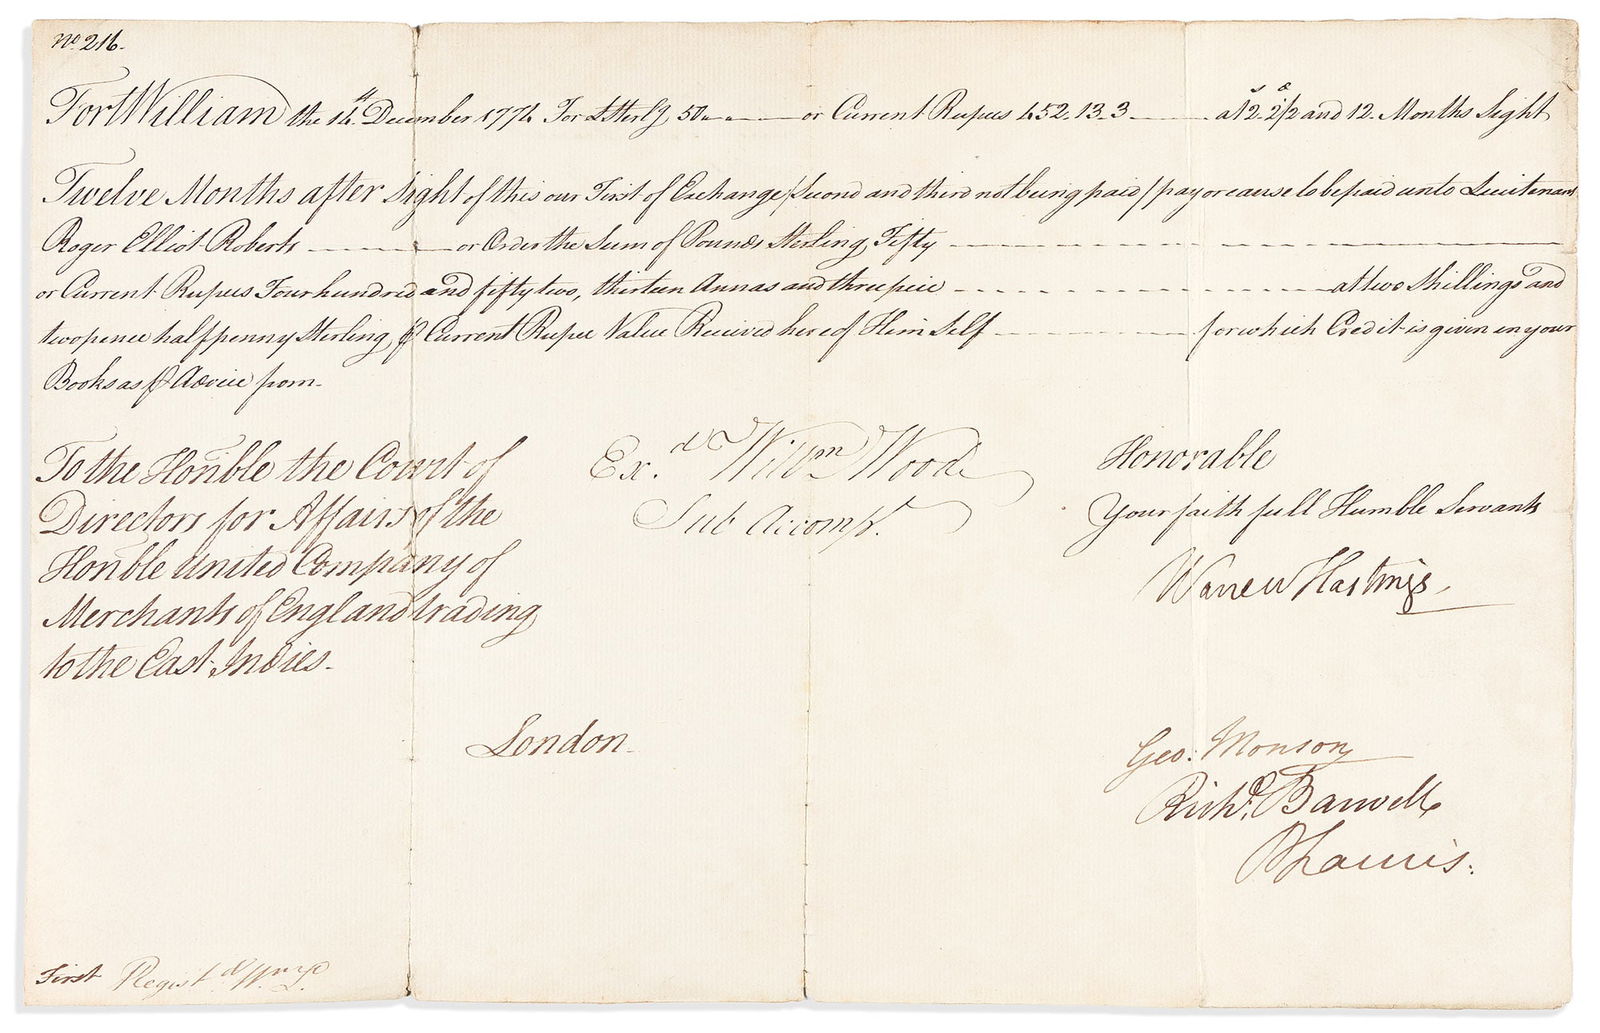 No. 216.
Fort William the 14th December 1774 For £ Sterlg 50 or Current Rupees 452.13.3 at 2s 2d 1/2 and 12 Months Sight
Twelve Months after Sight of this our First of Exchange /Second and third not being paid/ pay or cause to be paid unto Lieutenant
Roger Elliot Roberts or Order the Sum of Pounds Sterling Fifty
or Current Rupees Four hundred and fifty two, thirteen Annas and three peice at two Shillings and
twopence halfpenny Sterling ⅌ Current Rupee Value Received here of Him Self for which Credit is given in your
Books as ⅌ Advice from
To the Honble the Court of
Directors for Affairs of the
Honble United Company of
Merchants of England trading
to the East Indies.
London
Exd Willm Wood
Sub Accompt.
Honorable
Your faithfull Humble Servants
Warren Hastings
Geo: Monson
Richd. Barwell
P Francis
First Registd